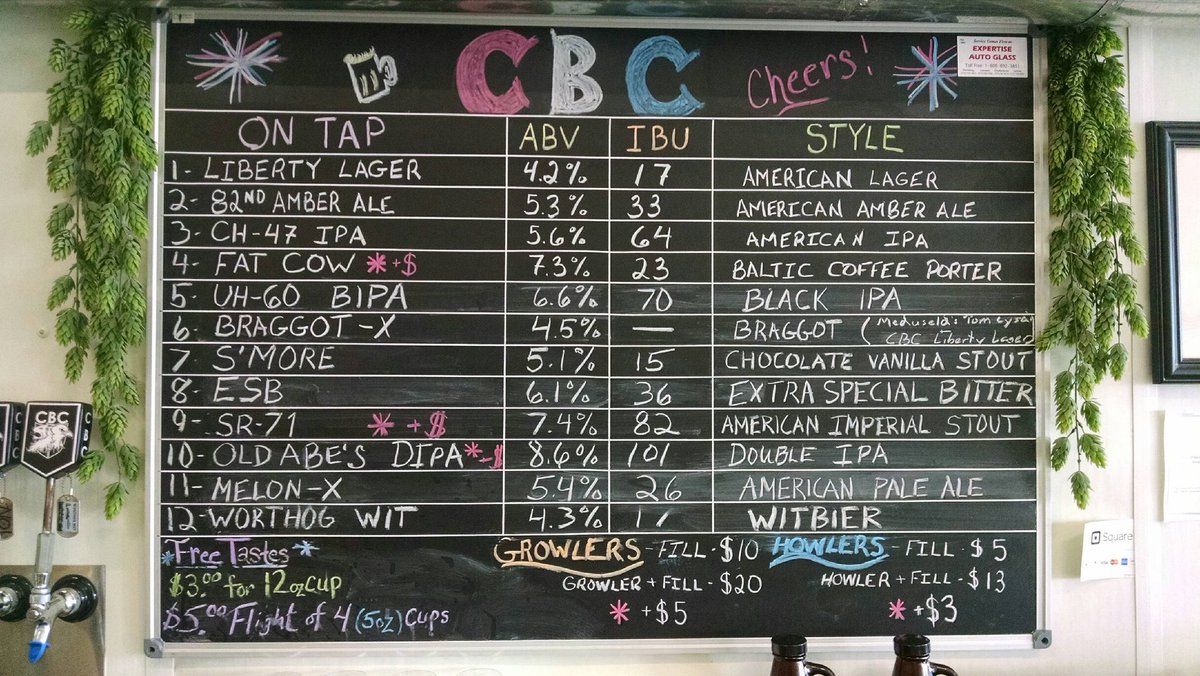 CBC Cheers!
EXPERTISE
AUTO GLASS
ON TAP ABV IBU STYLE
1- LIBERTY LAGER 4.2% 17 AMERICAN LAGER
2- 82ND AMBER ALE 5.3% 33 AMERICAN AMBER ALE
3- CH-47 IPA 5.6% 64 AMERICAN IPA
4- FAT COW *+$ 7.3% 23 BALTIC COFFEE PORTER
5- UH-60 BIPA 6.6% 70 BLACK IPA
6- BRAGGOT-X 4.5% — BRAGGOT (Meduseld's Tom
CBC Liberty Lager
7- S'MORE 5.1% 15 CHOCOLATE VANILLA STOUT
8- ESB 6.1% 36 EXTRA SPECIAL BITTER
9- SR-71 * +$ 7.4% 82 AMERICAN IMPERIAL STOUT
10- OLD ABE'S DIPA *-$ 8.6% 101 DOUBLE IPA
11- MELON-X 5.4% 26 AMERICAN PALE ALE
12- WORTHOG WIT 4.3% 17 WITBIER
*Free Tastes* GROWLERS - FILL - $10 HOWLERS - FILL - $5
$3.00 for 12oz Cup GROWLER + FILL - $20 HOWLER + FILL - $13
$5.00 Flight of 4 (5oz) Cups * +$5 * +$3
CBC
Square